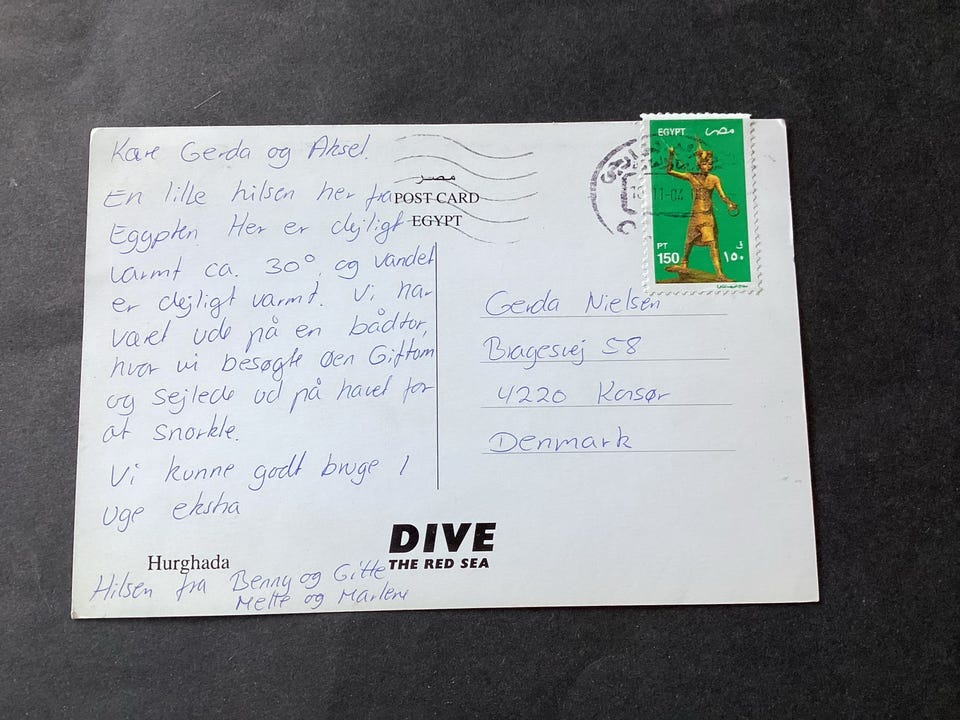 Kære Gerda og Aksel.
En lille hilsen her fra
Egypten. Her er dejligt
varmt ca. 30°, og vandet
er dejligt varmt. Vi har
været ude på en bådtur,
hvor vi besøgte øen Giftom
og sejlede ud på havet for
at snorkle.
Vi kunne godt bruge 1
uge ekstra
Hurghada
Hilsen fra Benny og Gitte
Mette og Marlene
مصر
POST CARD
EGYPT
DIVE
THE RED SEA
EGYPT مصر
11-04
PT
150
ق
١٥٠
Gerda Nielsen
Bragesvej 58
4220 Korsør
Denmark